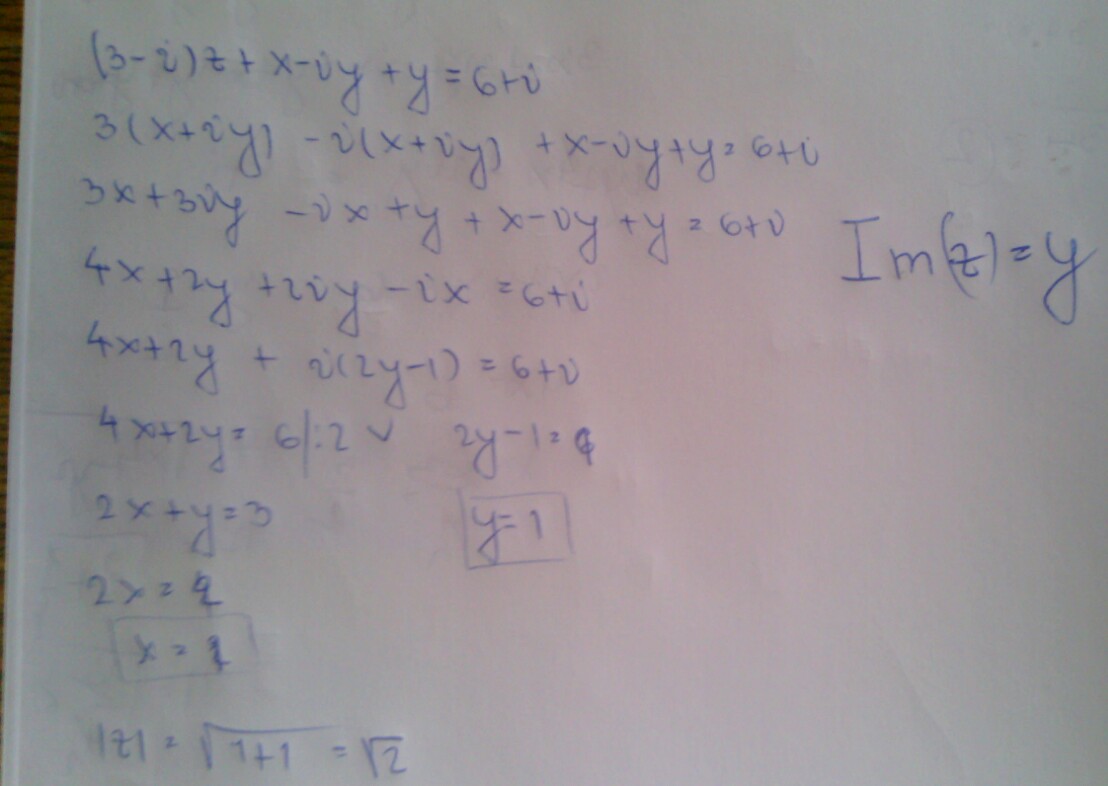 (3-i)z + x-iy + y = 6+i
3(x+iy) -i(x+iy) +x-iy+y = 6+i
3x+3iy -ix +y + x-iy +y = 6+i
Im(z)=y
4x+2y +2iy -ix = 6+i
4x+2y + i(2y-1) = 6+i
4x+2y = 6/:2 ✓ 2y-1=
2x+y=3 y=1
2x = 2
x = 1
|z| = √1+1 = √2